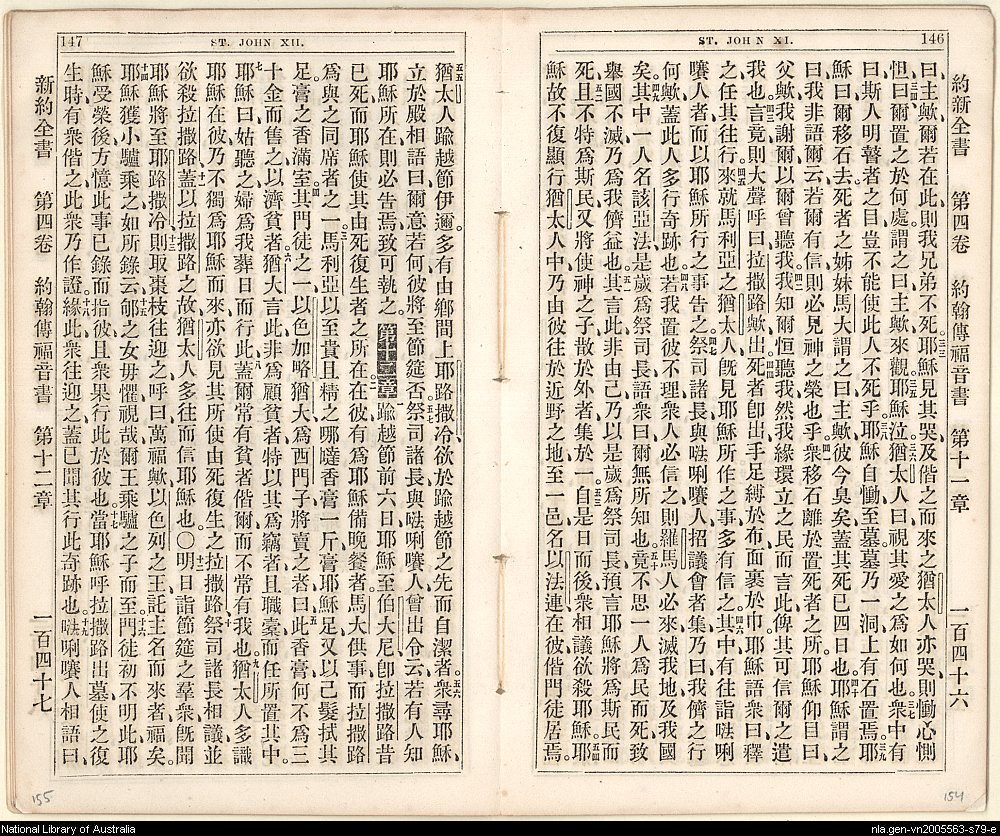 146
ST. JOHN XI.
約新全書 第四卷 約翰傳福音書 第十一章 一百四十六
曰主歟爾若在此則我兄弟不死耶穌見其哭及偕之而來之猶太人亦哭則慟心惻
怛曰爾置之於何處謂之曰主歟來觀耶穌泣猶太人曰視其愛之爲如何也衆中有
曰斯人明瞽者之目豈不能使此人不死乎耶穌自慟至墓墓乃一洞上有石置焉耶
穌曰爾移石去死者之姊妹馬大謂之曰主歟彼今臭矣蓋其死已四日也耶穌謂之
曰我非語爾云若爾有信則必見神之榮也乎衆移石離於置死者之所耶穌仰目曰
父歟我謝爾以爾曾聽我我知爾恒聽我然我緣環立之民而言此俾其可信爾之遣
我也言竟則大聲呼曰拉撒路歟出死者卽出手足縛於布面裹於巾耶穌語衆曰釋
之任其往行來就馬利亞之猶太人旣見耶穌所作之事多有信之其中有往詣㗭唎
㘔人者而以耶穌所行之事告之祭司諸長與㗭唎㘔人招議會者集乃曰我儕之行
何歟蓋此人多行奇跡也若我置彼不理衆人必信之則羅馬人必來滅我地及我國
矣其中一人名該亞法是歲爲祭司長語衆曰爾無所知也竟不思一人爲民而死致
舉國不滅乃爲我儕益也其言此非由己乃以是歲爲祭司長預言耶穌將爲斯民而
死且不特爲斯民又將使神之子散於外者集於一自是日而後衆相議欲殺耶穌耶
穌故不復顯行猶太人中乃由彼往於近野之地至一邑名以法連在彼偕門徒居焉
147
ST. JOHN XII.
猶太人踰越節伊邇多有由鄉間上耶路撒冷欲於踰越節之先而自潔者衆尋耶穌
立於殿相語曰爾意若何彼將至節筵否祭司諸長與㗭唎㘔人曾出令云若有人知
耶穌所在則必告焉致可執之第十二章踰越節前六日耶穌至伯大尼卽拉撒路昔
已死而耶穌使其由死復生者之所在在彼有爲耶穌備晚餐者馬大供事而拉撒路
爲與之同席者之一馬利亞以至貴且精之哪噠香膏一斤膏耶穌足又以己髮拭其
足膏之香滿室其門徒之一以色加略猶大爲西門子將賣之者曰此香膏何不爲三
十金而售之以濟貧者猶大言此非爲顧貧者特以其爲竊者且職橐而任所置其中
耶穌曰姑聽之婦爲我葬日而行此蓋爾常有貧者偕爾而不常有我也猶太人多識
耶穌在彼乃不獨爲耶穌而來亦欲見其所使由死復生之拉撒路祭司諸長相議並
欲殺拉撒路蓋以拉撒路之故猶太人多往而信耶穌也〇明日詣節筵之羣衆旣聞
耶穌將至耶路撒冷則取棗枝往迎之呼曰萬福歟以色列之王託主名而來者福矣
耶穌獲小驢乘之如所錄云郇之女毋懼視哉爾王乘驢之子而至門徒初不明此耶
穌受榮後方憶此事已錄而指彼且衆果行此於彼也當耶穌呼拉撒路出墓使之復
生時有衆偕之此衆乃作證緣此衆往迎之蓋已聞其行此奇跡也㗭唎㘔人相語曰
新約全書 第四卷 約翰傳福音書 第十二章 一百四十七
155
154
National Library of Australia
nla.gen-vn2005563-s79-e